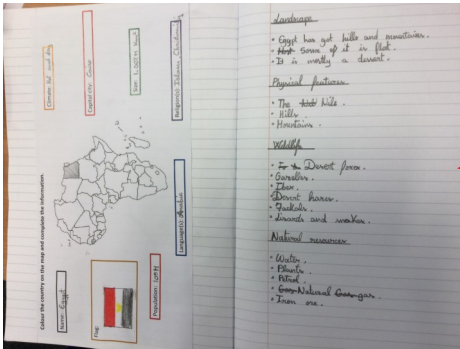 Colour the country on the map and complete the information.
Name: Egypt
Flag:
Population: 
Language(s): Arabic
Religion(s): Islam, Christianity
Size: 
Capital city: Cairo
Climate: hot and dry
Landscape
• Egypt has got hills and mountains.
• Some of it is flat.
• It is mostly a dessert.
Physical features
• The Nile.
• Hills.
• Mountains.
Wildlife
• Desert foxes.
• Gazelles.
• Ibex.
Desert hares.
• Jackals.
• Lizards and snakes.
Natural resources
• Water.
• Plants.
• Petrol.
• Natural gas.
• Iron ore.